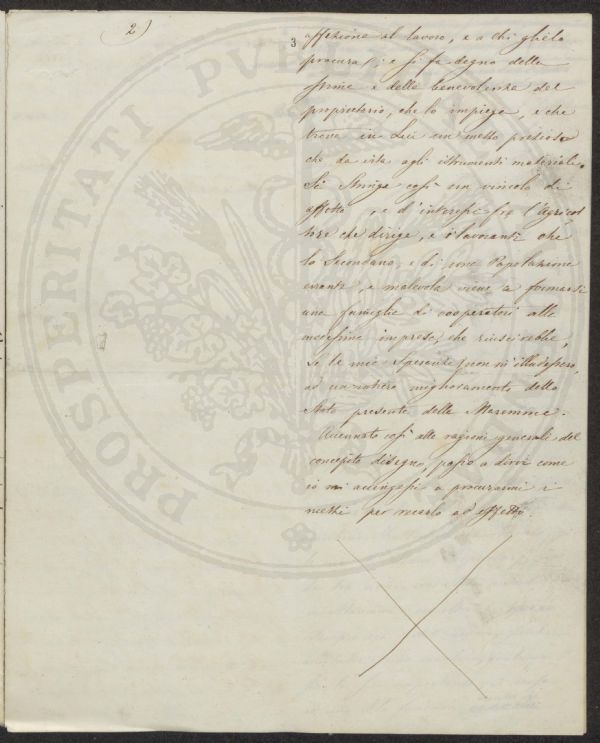 2)
3
affezione al lavoro, e a chi gliela
procura; e si fa degno della
stima e della benevolenza del
proprietario, che lo impiega, e che
trova in Lui un mezzo prezioso
che da vita agli istrumenti materiali.
Si stringe così un vincolo di
affetto, e d'interessi fra l'Agricol
tore che dirige, e i lavoranti che
lo secondano, e di una Popolazione
errante e malevola viene a formarsi
una famiglia di cooperatori alla
medesima impresa, che riuscirebbe,
se le mie speranze non m'illudessero,
ad un vero miglioramento dello
stato presente delle Maremme.
Accennato così alle ragioni generali del
concepito disegno, passo a dirvi come
io mi accingessi a procurarmi i
mezzi per recarlo ad effetto.
PROSPERITATI PUBL